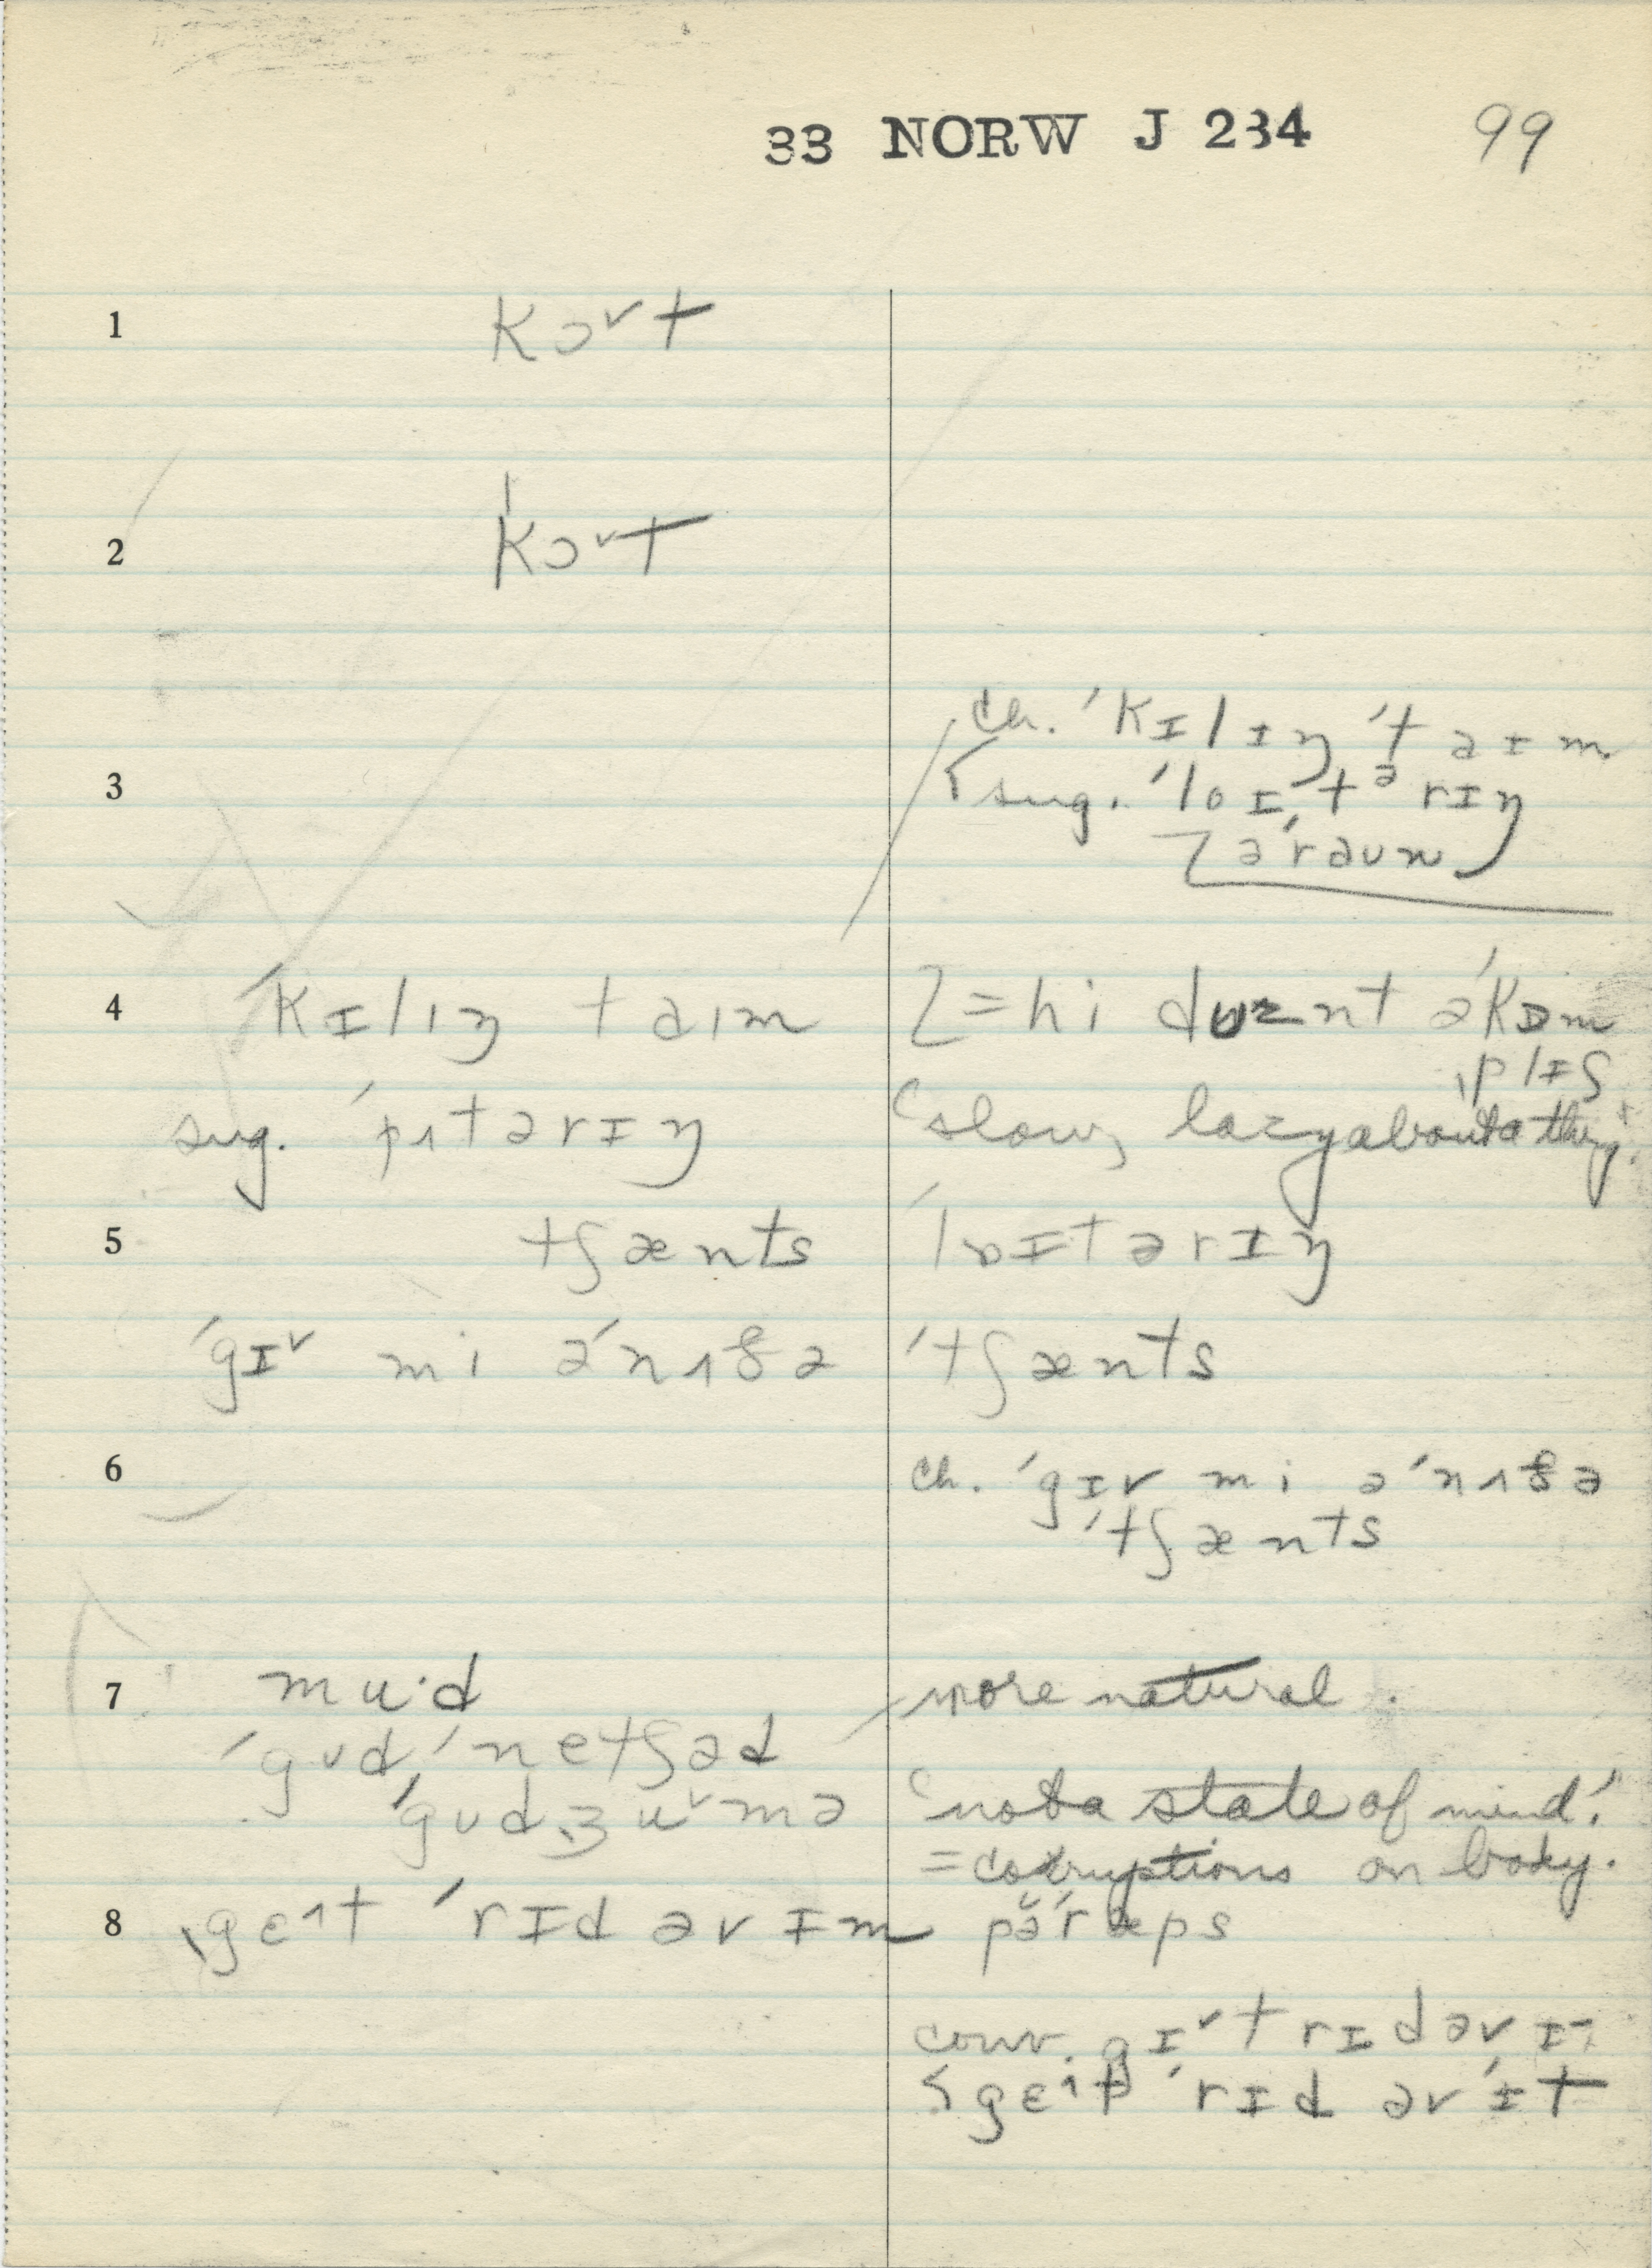 33 NORW J 234 99
1 kɔᵛt
2 ˈkɔᵛt
ch. ˈkɪlɪŋ ˈtaɪm
3 sug. ˈlɒɪtᵊrɪŋ
əˈraun
4 ˈkɪlɪŋ taɪm = hi duznt əˈkɒm
ˌplɪʃ
sug. ˈpʌtərɪŋ "slow, lazy about a thing"
5 tʃænts ˈlɒɪtərɪŋ
ˈgɪᵛ mi əˈnʌðə ˈtʃænts
6 ch. ˈgɪv mi əˈnʌðə
ˈtʃænts
7 mu·d more natural.
ˈgud ˈnetʃəd
ˈgud ˌʒuᵛmə 'not a state of mind'.
= corruptions on body.
8 ˌgɛᶦt ˈrɪd əv ɪm pə̆ˈræps
conv. gɪᵛt rɪd əv ɪ-
gɛᶦt ˈrɪd əvˈɪt